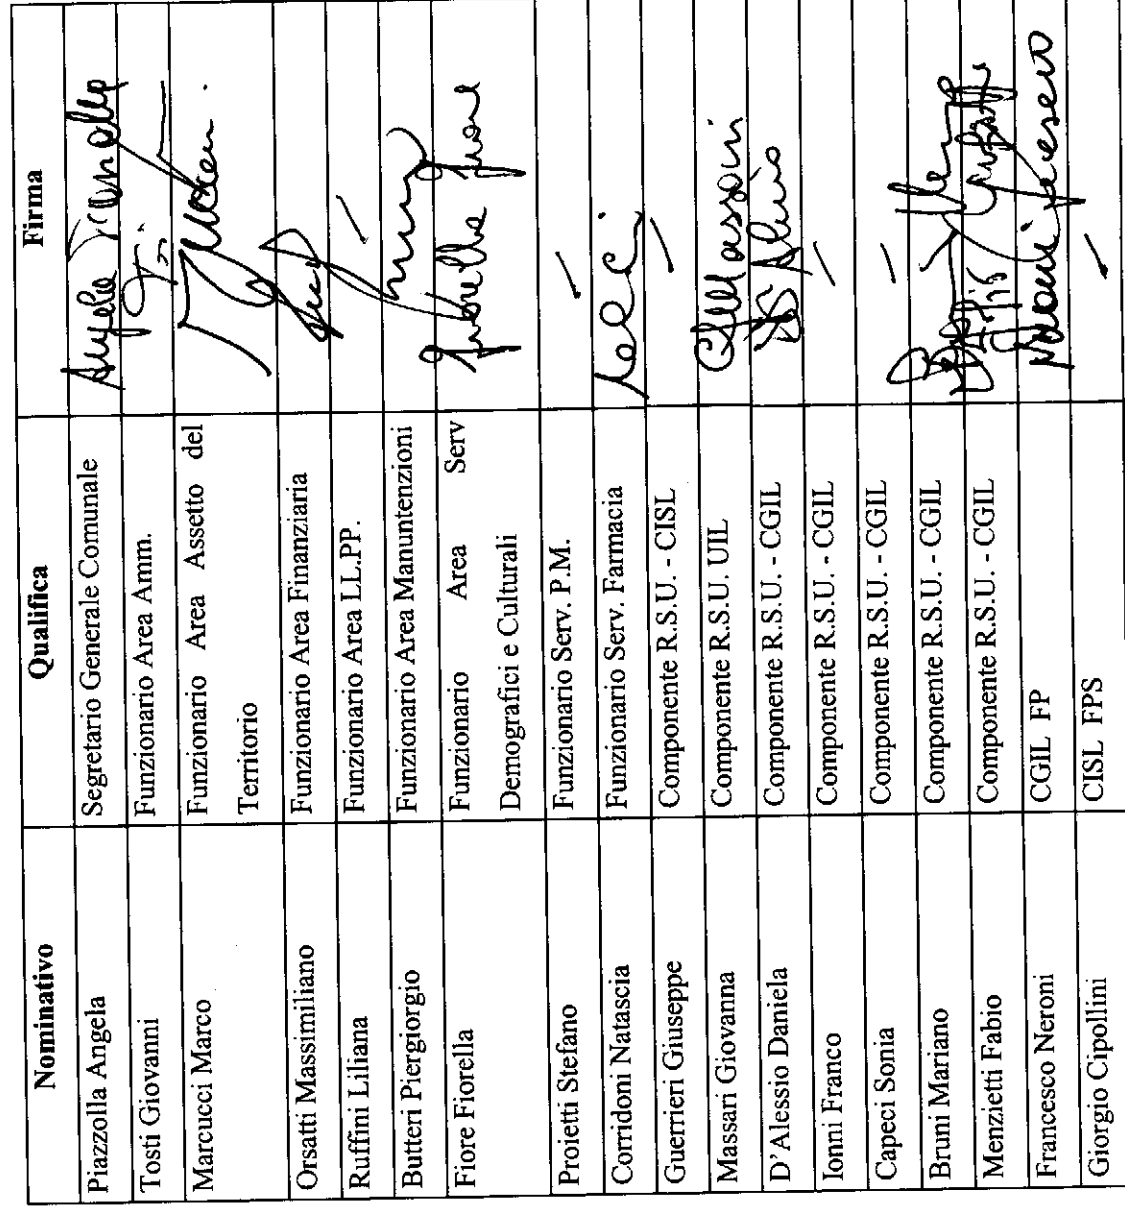 Nominativo Qualifica Firma
Piazzolla Angela Segretario Generale Comunale
Tosti Giovanni Funzionario Area Amm.
Marcucci Marco Funzionario Area Assetto del
Territorio
Orsatti Massimiliano Funzionario Area Finanziaria
Ruffini Liliana Funzionario Area LL.PP.
Butteri Piergiorgio Funzionario Area Manuntenzioni
Fiore Fiorella Funzionario Area Serv
Demografici e Culturali
Proietti Stefano Funzionario Serv. P.M.
Corridoni Natascia Funzionario Serv. Farmacia
Guerrieri Giuseppe Componente R.S.U. - CISL
Massari Giovanna Componente R.S.U. UIL
D'Alessio Daniela Componente R.S.U. - CGIL
Ionni Franco Componente R.S.U. - CGIL
Capeci Sonia Componente R.S.U. - CGIL
Bruni Mariano Componente R.S.U. - CGIL
Menzietti Fabio Componente R.S.U. - CGIL
Francesco Neroni CGIL FP
Giorgio Cipollini CISL FPS